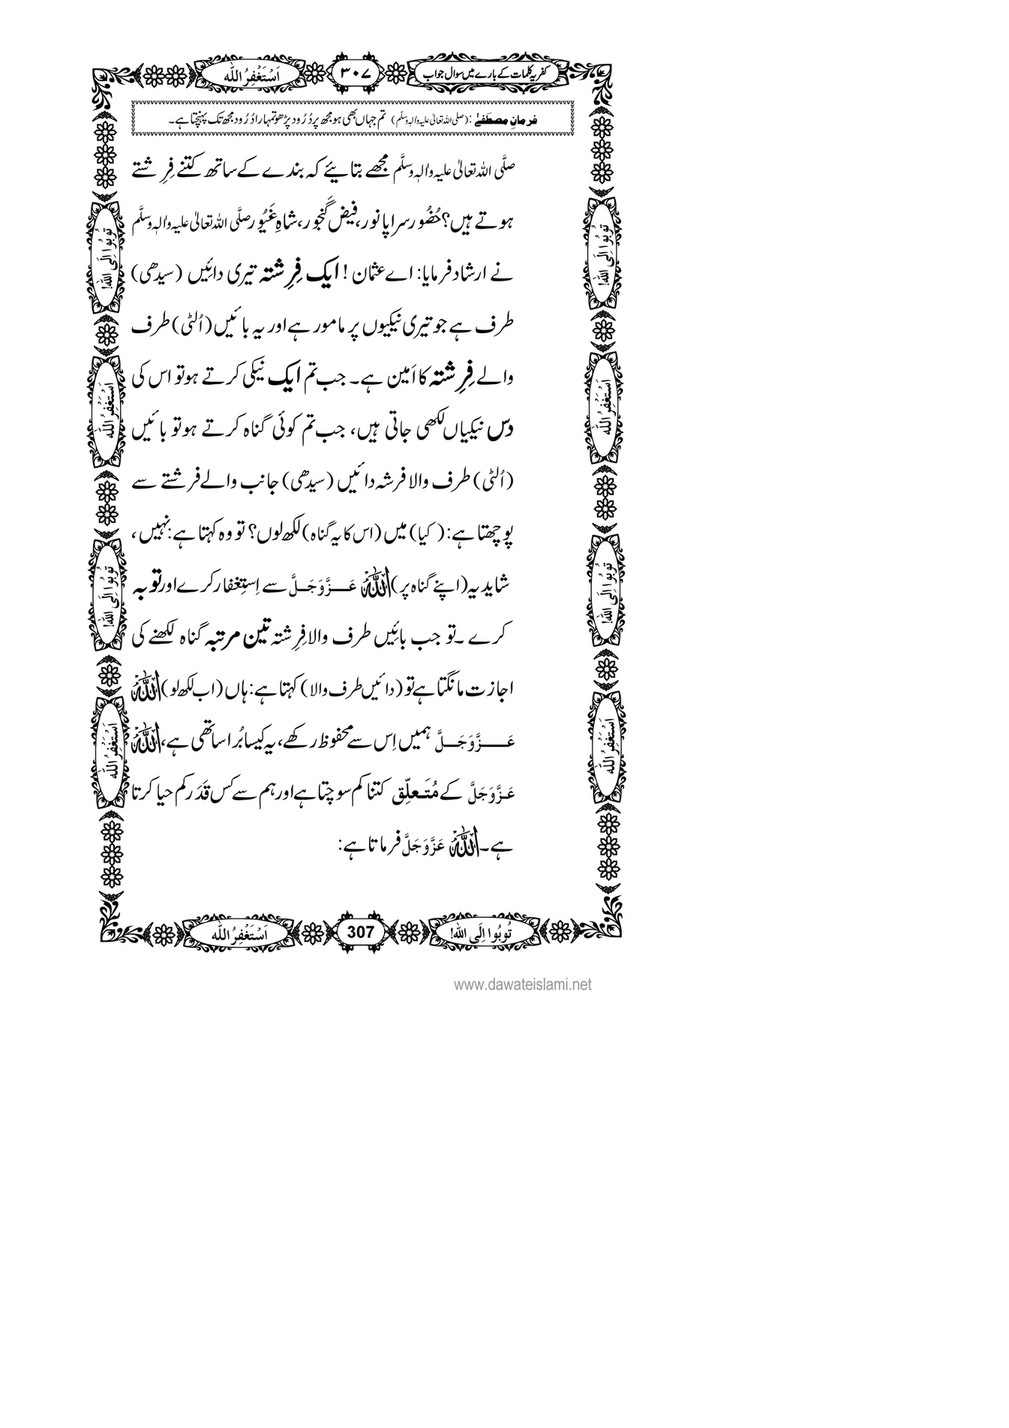 کفریہ کلمات کے بارے میں سوال جواب
۳۰۷
اَسْتَغْفِرُ اللّٰه
فرمانِ مصطَفٰے : (صلی اللہ تعالیٰ علیہ والہٖ وسلّم) تم جہاں بھی ہو مجھ پر دُرُود پڑھو تمہارا دُرُود مجھ تک پہنچتا ہے۔
صلَّی اللہ تعالیٰ علیہ والہٖ وسلَّم مجھے بتایئے کہ بندے کے ساتھ کتنے فِرِشتے
ہوتے ہیں؟ حُضُور سراپا نور، فیض گَنجور، شاہِ غَیُور صلَّی اللہ تعالیٰ علیہ والہٖ وسلَّم
نے ارشاد فرمایا: اے عثمان! ایک فِرِشتہ تیری دائیں (سیدھی)
طرف ہے جو تیری نیکیوں پر مامور ہے اور یہ بائیں (اُلٹی) طرف
والے فِرِشتہ کا اَمین ہے۔ جب تم ایک نیکی کرتے ہو تو اس کی
دس نیکیاں لکھی جاتی ہیں، جب تم کوئی گناہ کرتے ہو تو بائیں
(اُلٹی) طرف والا فرشہ دائیں (سیدھی) جانب والے فرشتے سے
پوچھتا ہے: (کیا) میں (اس کا یہ گناہ) لکھ لوں؟ تو وہ کہتا ہے: نہیں،
شاید یہ (اپنے گناہ پر) اللّٰہ عَزَّوَجَلَّ سے اِستِغفار کرے اور توبہ
کرے۔ تو جب بائیں طرف والا فِرِشتہ تین مرتبہ گناہ لکھنے کی
اجازت مانگتا ہے تو (دائیں طرف والا) کہتا ہے: ہاں (اب لکھ لو) اللّٰہ
عَزَّوَجَلَّ ہمیں اِس سے محفوظ رکھے، یہ کیسا بُرا ساتھی ہے، اللّٰہ
عَزَّوَجَلَّ کے مُتَعلِّق کتنا کم سوچتا ہے اور ہم سے کس قَدَر کم حیا کرتا
ہے۔ اللّٰہ عَزَّوَجَلَّ فرماتا ہے:
تُوبُوا اِلَی اللّٰه!
اَسْتَغْفِرُ اللّٰه
تُوبُوا اِلَی اللّٰه!
اَسْتَغْفِرُ اللّٰه
تُوبُوا اِلَی اللّٰه!
اَسْتَغْفِرُ اللّٰه
تُوبُوا اِلَی اللّٰه!
اَسْتَغْفِرُ اللّٰه
تُوبُوا اِلَی اللّٰه!
307
اَسْتَغْفِرُ اللّٰه
www.dawateislami.net